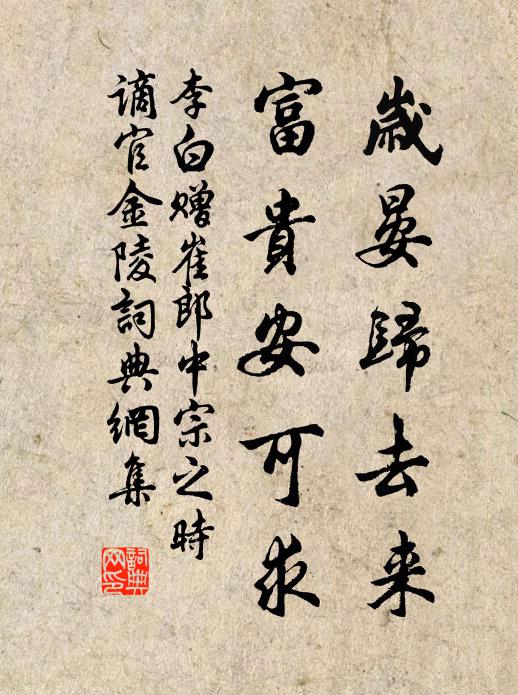 歲晏歸去来
富貴安可求
李白赠崔郎中宗之時
謫官金陵詞典網集
詞典网印